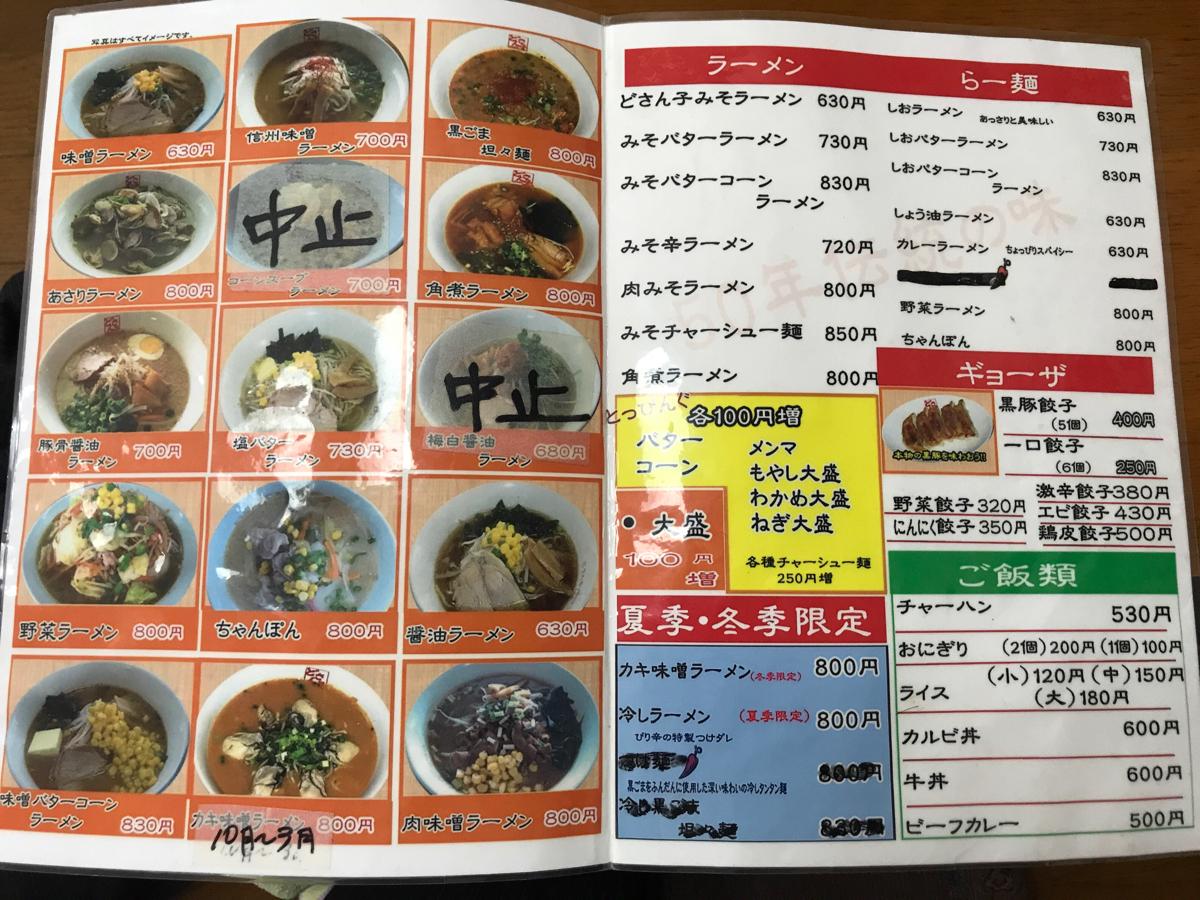 写真はすべてイメージです。
味噌ラーメン 630円
信州味噌
ラーメン 700円
黒ごま
坦々麺 800円
あさりラーメン 800円
中止
コーンスープ
ラーメン 700円
角煮ラーメン 800円
豚骨醤油
ラーメン 700円
塩バター
ラーメン 730円
中止
梅白醤油
ラーメン 680円
野菜ラーメン 800円
ちゃんぽん 800円
醤油ラーメン 630円
味噌バターコーン
ラーメン 830円
カキ味噌ラーメン 800円
10月〜3月
肉味噌ラーメン 800円
ラーメン
どさん子みそラーメン 630円
みそバターラーメン 730円
みそバターコーン
ラーメン 830円
みそ辛ラーメン 720円
肉みそラーメン 800円
みそチャーシュー麺 850円
角煮ラーメン 800円
らー麺
しおラーメン あっさりと美味しい 630円
しおバターラーメン 730円
しおバターコーン
ラーメン 830円
しょう油ラーメン 630円
カレーラーメン ちょっぴりスパイシー 630円
野菜ラーメン 800円
ちゃんぽん 800円
50年伝統の味
とっぴんぐ
各100円増
バター
コーン
メンマ
もやし大盛
わかめ大盛
ねぎ大盛
各種チャーシュー麺
250円増
・大盛
100円
増
ギョーザ
本物の黒豚を味わおう!!
黒豚餃子
(5個) 400円
一口餃子
(6個) 250円
野菜餃子320円
にんにく餃子350円
激辛餃子380円
エビ餃子430円
鶏皮餃子500円
夏季・冬季限定
カキ味噌ラーメン(冬季限定) 800円
冷しラーメン (夏季限定) 800円
ぴり辛の特製つけダレ
黒ごまをふんだんに使用した深い味わいの冷しタンタン麺
坦々麺 830円
ご飯類
チャーハン 530円
おにぎり (2個)200円(1個)100円
ライス (小)120円(中)150円
(大)180円
カルビ丼 600円
牛丼 600円
ビーフカレー 500円